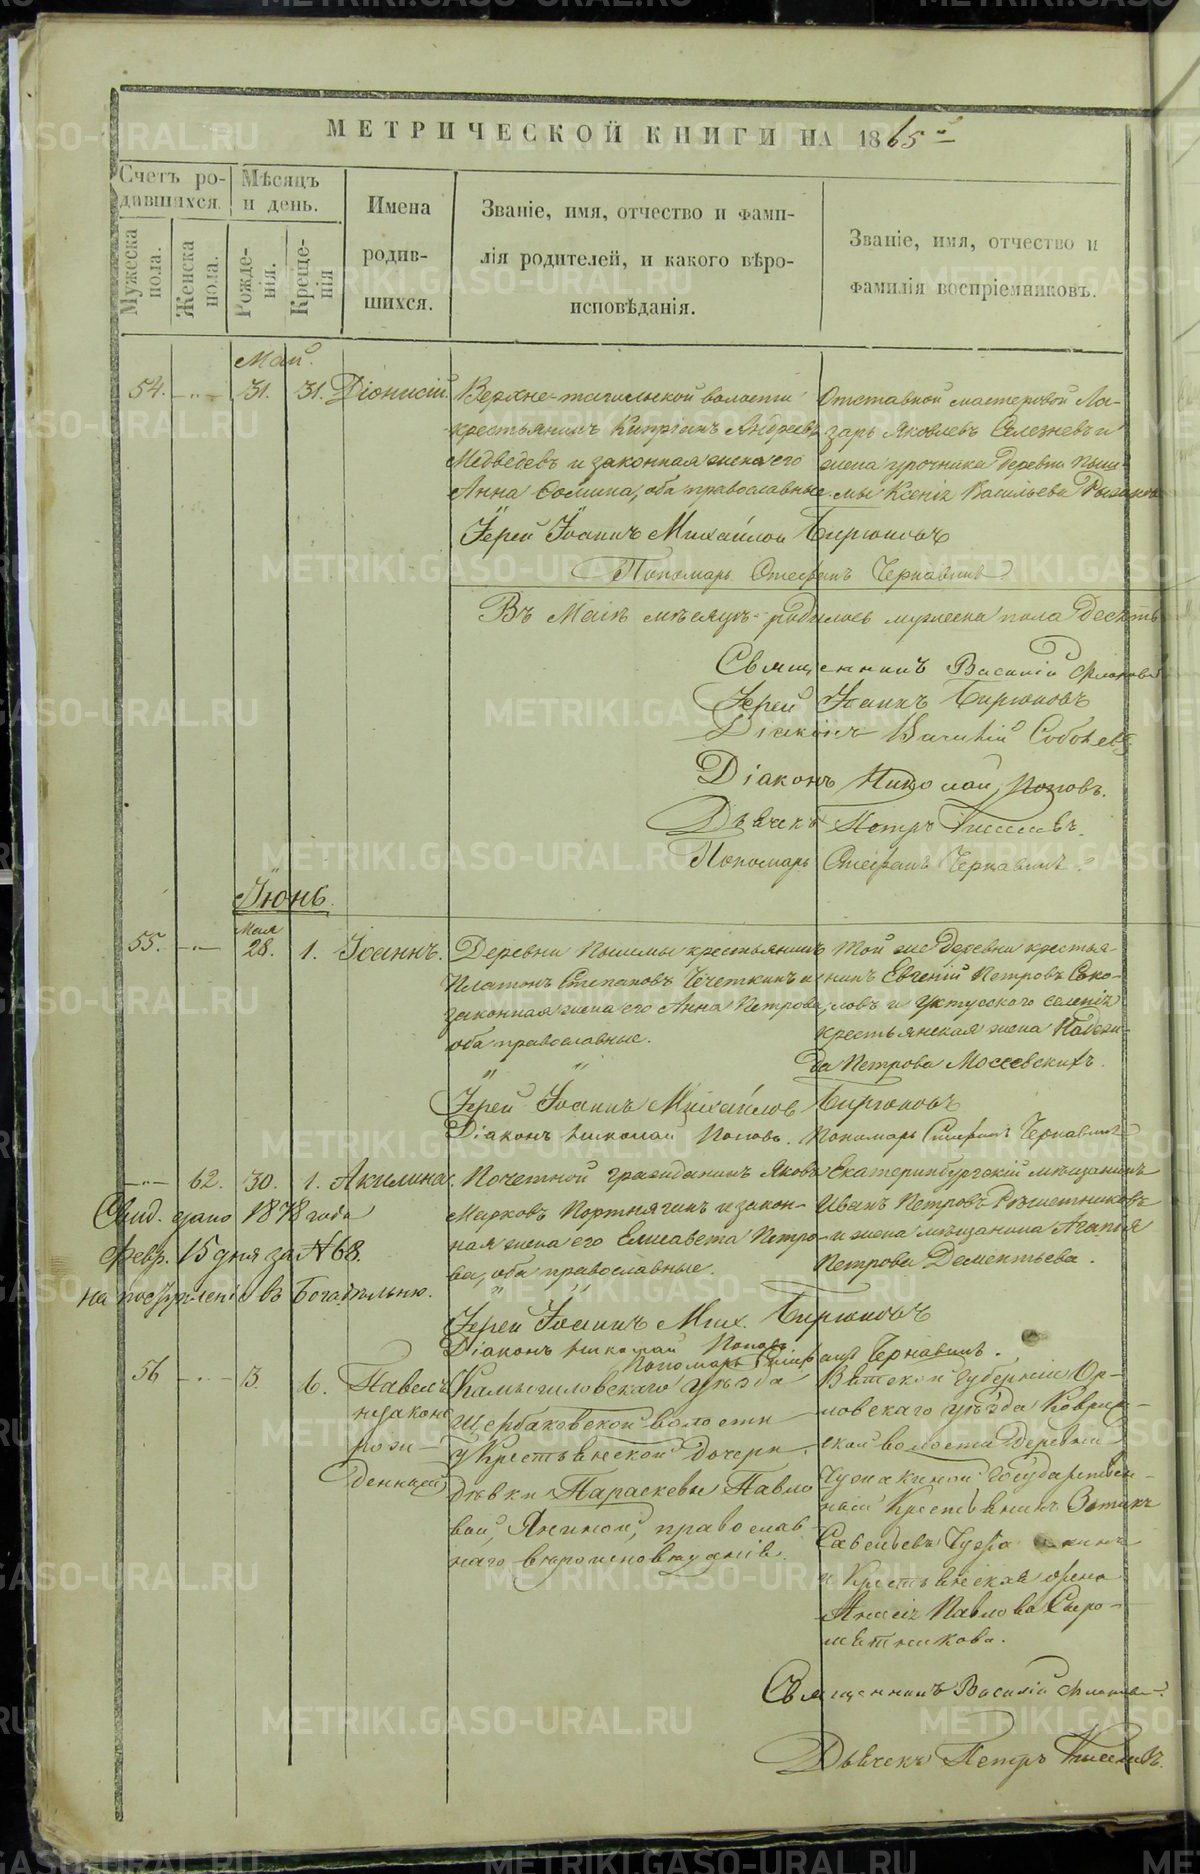 МЕТРИЧЕСКОЙ КНИГИ НА 1865
Счетъ родившихся.
Мужеска пола.
Женска пола.
Мѣсяцъ и день.
Рожденія.
Крещенія
Имена родившихся.
Званіе, имя, отчество и фамилія родителей, и какого вѣроисповѣданія.
Званіе, имя, отчество и фамилія воспріемниковъ.
Май
54. 31. 31. Діонисій
Верхне-тагильской волости
крестьянинъ Кипріанъ Андреевъ
Медведевъ и законная жена его
Анна Фомина, оба православные.
Отставной мастеровой Ла-
зарь Яковлевъ Селезневъ и
жена урочника деревни Пыш-
мы Ксенія Васильева
Іерей Іоаннъ Михайлов Бирюковъ
Пономарь Стефанъ Чернавинъ
Въ Маіѣ мѣсяцѣ родилось мужеска пола десять
Священникъ Василій
Іерей Іоаннъ Бирюковъ
Діаконъ Василій Соболевъ
Діаконъ Николай Поповъ.
Дьячекъ Петръ Киселевъ.
Пономарь Стефанъ Чернавинъ
Іюнь.
Мая
55. 28. 1. Іоаннъ.
Деревни Пышмы крестьянинъ
Платонъ Степановъ Чечеткинъ и
законная жена его Анна Петрова,
оба православные.
Той же деревни крестья-
нинъ Евгеній Петровъ Соко-
ловъ и Уктусскаго селенія
крестьянская жена Надеж-
да Петрова Мосеевскихъ.
Іерей Іоаннъ Михайлов Бирюковъ
Діаконъ Николай Поповъ. Пономарь Стефанъ Чернавинъ
62. 30. 1. Акилина.
Почетной гражданинъ Яковъ
Марковъ Портнягинъ и закон-
ная жена его Елисавета Петро-
ва, оба православные.
Екатеринбургскій мѣщанинъ
Иванъ Петровъ Рѣшетниковъ
и жена мѣщанина Агапія
Петрова Дементьева.
Свид. дано 1878 года
Февр. 15 дня за № 68.
на поступленіе въ Богадѣльню.
Іерей Іоаннъ Мих. Бирюковъ
Діаконъ Николай Поповъ
Пономарь Стефанъ Чернавинъ.
56 3. 6. Павелъ
незаконо
рож-
денный
Камышловскаго уѣзда
Щербаковской волости
у Крестьянской дочери
дѣвки Параскевы Павло
вой, православ-
наго вѣроисповѣданія.
Вятской губерніи Ор-
ловскаго уѣзда
ской волости деревни
Чудакиной Государствен-
ной Крестьянинъ Зотикъ
Савельевъ
и Крестьянская жена
Павлова Сыро-
мѣтникова.
Священникъ Василій
Дьячекъ Петръ Киселевъ.
METRIKI.GASO-URAL.RU